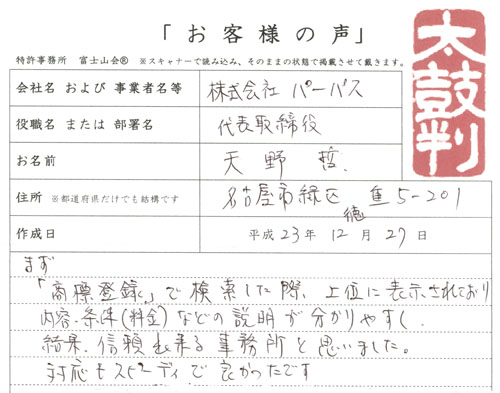 「お客様の声」
特許事務所 富士山会® ※スキャナーで読み込み、そのままの状態で掲載させて戴きます。
太鼓判
会社名 および 事業者名等 株式会社 パーパス
役職名 または 部署名 代表取締役
お名前 天野 哲
住所 ※都道府県だけでも結構です 名古屋市緑区 徳重5-201
作成日 平成 23 年 12 月 27 日
まず
「商標登録」で検索した際、上位に表示されており
内容・条件(料金)などの説明が分かりやすく、
結果、信頼出来る事務所と思いました。
対応もスピーディで良かったです